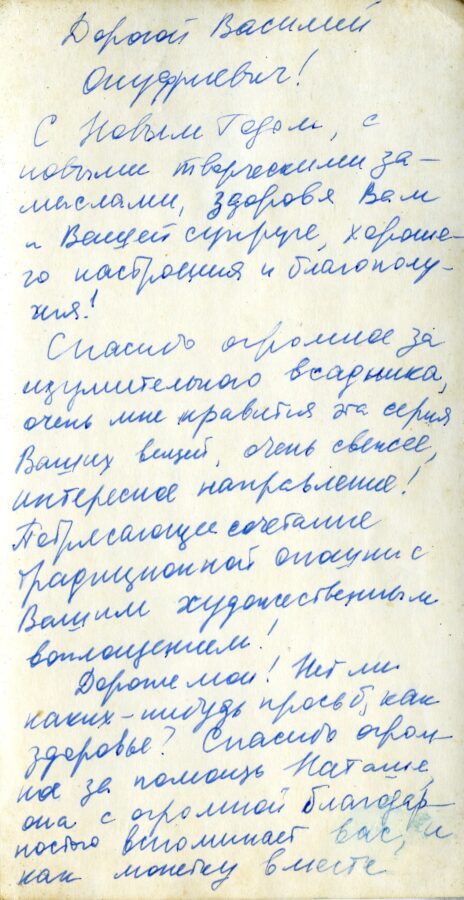 Дорогой Василий
Онуфриевич!
С Новым Годом, с
новыми творческими за-
мыслами, здоровья Вам
и Вашей супруге, хороше-
го настроения и благополу-
чия!
Спасибо огромное за
изумительного всадника,
очень мне нравится эта серия
Ваших вещей, очень свежее,
интересное направление!
Потрясающее сочетание
традиционной с
Вашим художественным
воплощением!
Дорогие мои! Нет ли
каких-нибудь просьб, как
здоровье? Спасибо огром-
ное за помощь Наташе,
она с огромной благодар-
ностью вспоминает вас, и
как монетку вместе